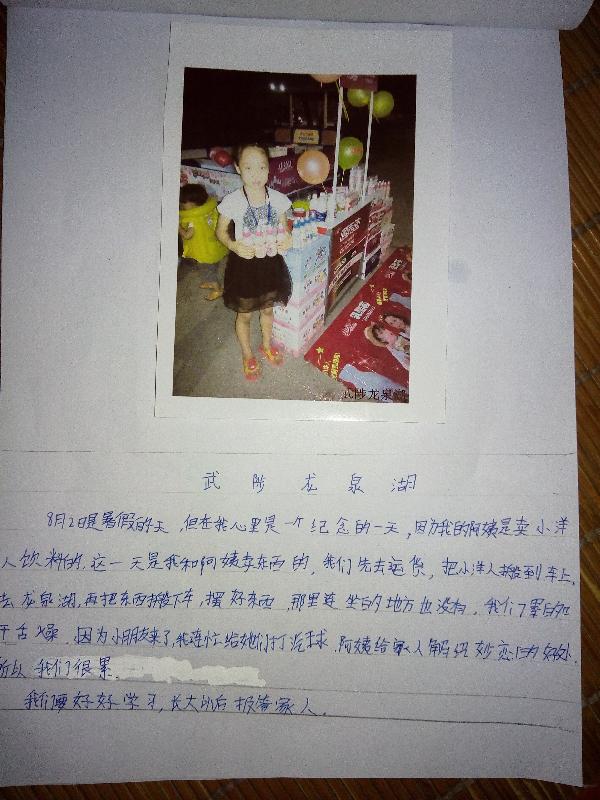 武陟龙泉湖
武陟龙泉湖
8月2日是暑假的一天,但在我心里是一个纪念的一天,因为我的阿姨是卖小洋
人饮料的,这一天是我和阿姨卖东西的,我们先去运货,把小洋人搬到车上,
去龙泉湖,再把东西搬下车,摆好东西,那里连坐的地方也没有,我们了累的口
干舌燥,因为小朋友来了,我连忙给她们打汽球,阿姨给家人解说妙恋的好处,
所以我们很累。
我们要好好学习,长大以后报答家人。